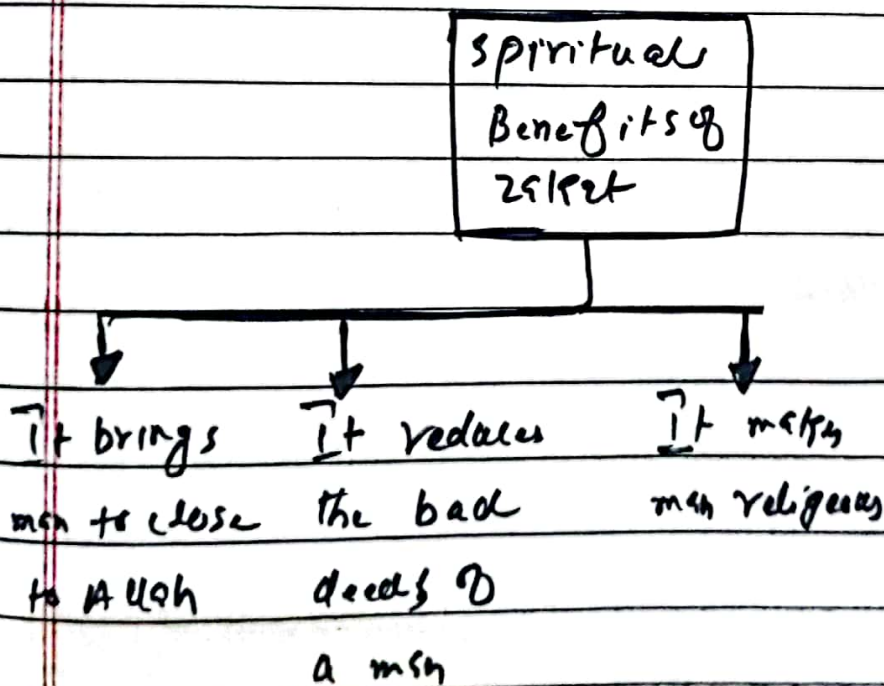 Spiritual
Benefits of
zakat
It brings
man to close
to Allah
It reduces
the bad
deeds of
a man
It makes
man religeous